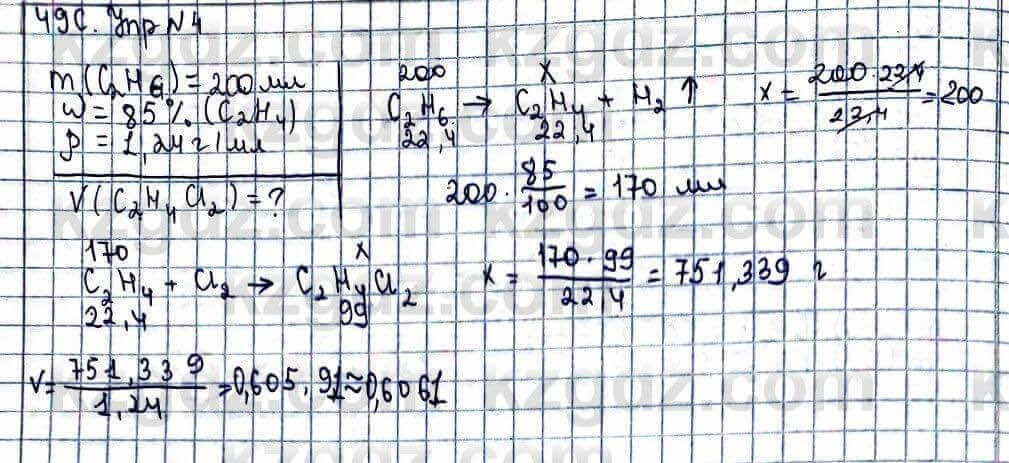 49С. Упр №4
m(C₂H₆) = 200 мл
w = 85%. (C₂H₄)
ρ = 1,24 г/мл
V(C₂H₄Cl₂) = ?
200 x
C₂H₆ → C₂H₄ + H₂ ↑
22,4 22,4
x = 200 · 22,4 / 22,4 = 200
200 · 85/100 = 170 мл
170 x
C₂H₄ + Cl₂ → C₂H₄Cl₂
22,4 99
x = 170 · 99 / 22,4 = 751,339 г
V = 751,339 / 1,24 = 0,605,91 ≈ 0,6061
kzgdz.com